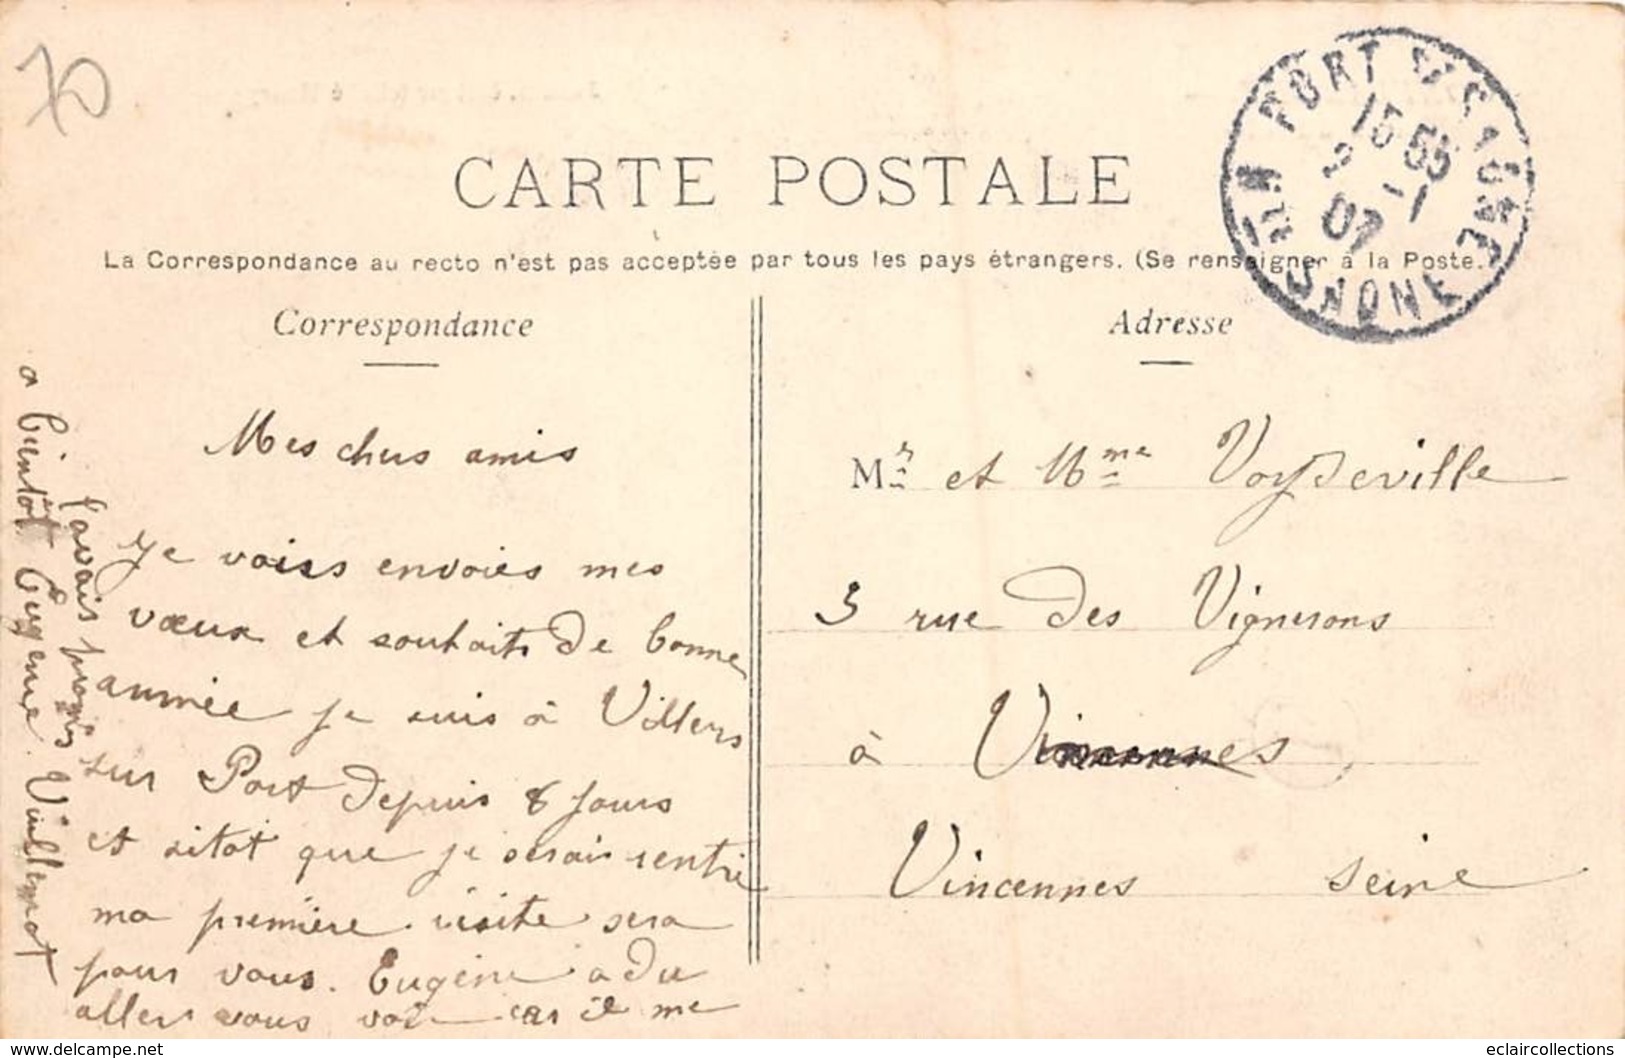 70
CARTE POSTALE
La Correspondance au recto n'est pas acceptée par tous les pays étrangers. (Se renseigner à la Poste.)
Correspondance
Mes chers amis
Je voiss envoies mes
vœux et souhaits de bonne
année je suis à Villers
sur Port depuis 8 jours
et sitot que je serais rentré
ma première visite sera
pour vous. Eugène a du
aller vous voir car il me
l'avais promis
a bientôt Eugenie Vuillemot
Adresse
Mr et Mme Voydeville
3 rue des Vignerons
à Vincennes
Vincennes Seine
PORT S/ SAONE
15 55
2 -1
07
HTE SAONE
eclaircollections.delcampe.net
eclaircollections